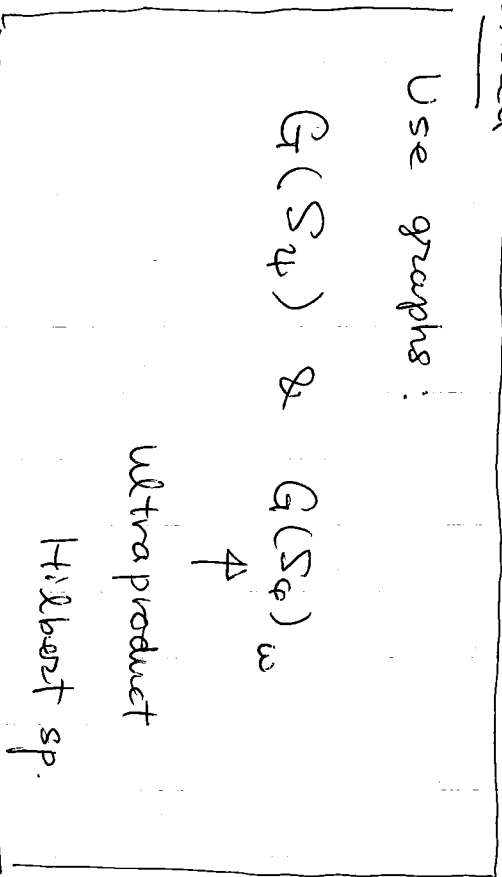 Use graphs:
G(S_φ) & G(S_φ)_ω
↑
ultraproduct
Hilbert sp.